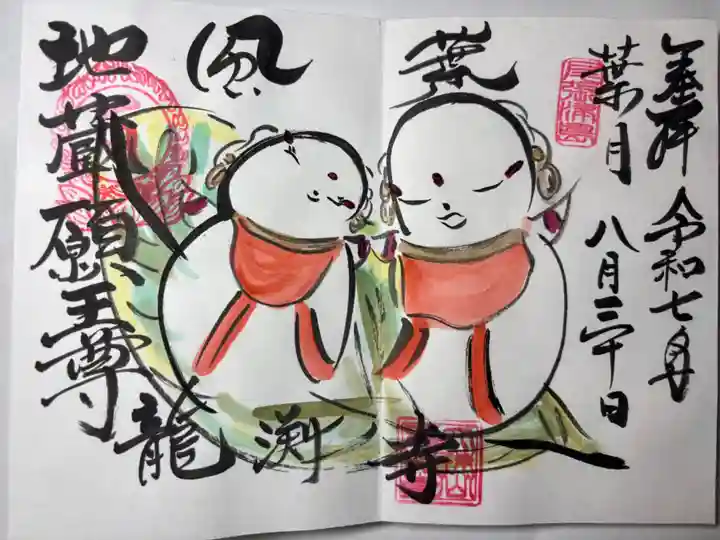 奉拝 令和七年
葉月 八月三十日
地蔵願王尊
龍渕寺